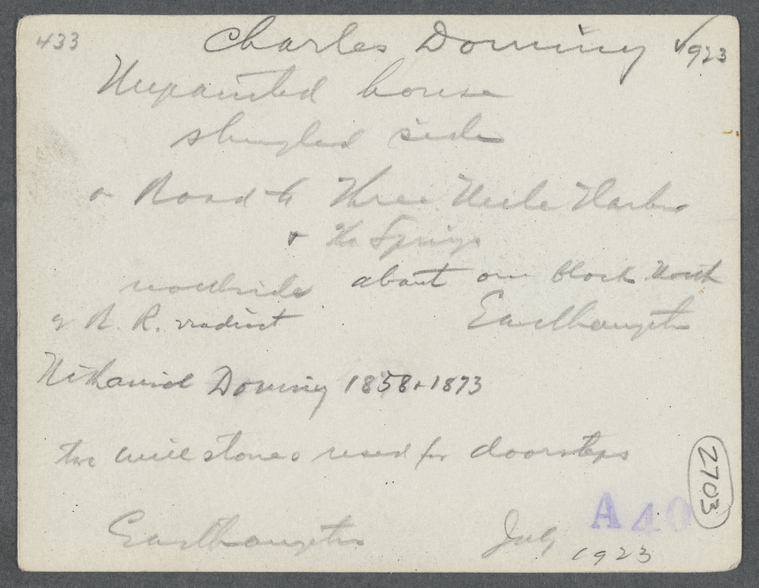 433 Charles Dominy 1923
Unpainted house
shingled side
on Road to Three Mile Harbor
+ the Springs
northside about one block North
of R. R. viaduct Easthampton
Nathaniel Dominy 1858 + 1873
two mill stones used for doorsteps
2703
A 40
Easthampton July 1923